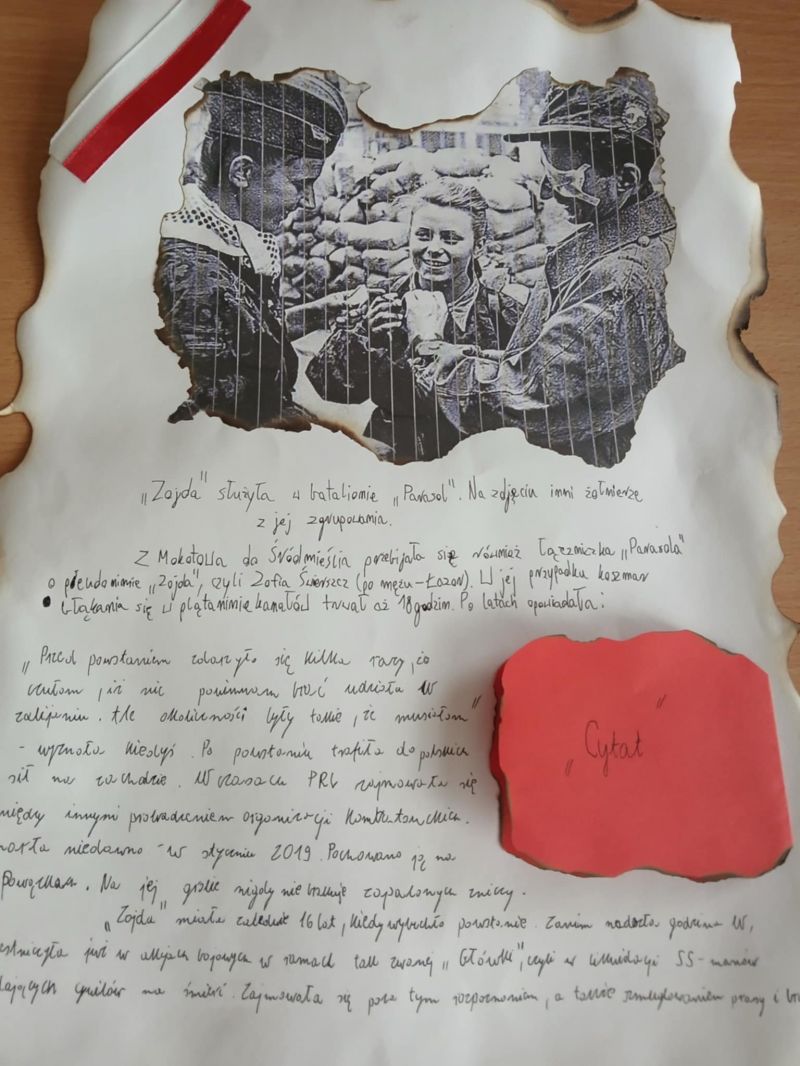 „Zojda" służyła w batalionie „Parasol". Na zdjęciu inni żołnierze
z jej zgrupowania.
Z Mokotowa do Śródmieścia przebijała się również łączniczka „Parasola"
o pseudonimie „Zojda", czyli Zofia Świerszcz (po mężu-Łazor). W jej przypadku koszmar
błąkania się w plątaninie kanałów trwał aż 18 godzin. Po latach opowiadała:
„Przed powstaniem zdarzyło się kilka razy, że
czułam, iż nie powinnam brać udziału w
zabijaniu. Ale okoliczności były takie, że musiałam"
- wyznała kiedyś. Po powstaniu trafiła do polskich
sił na zachodzie. W czasach PRL zajmowała się
między innymi prowadzeniem organizacji kombatanckich.
marła niedawno - w styczniu 2019. Pochowano ją na
Powązkach. Na jej grobie nigdy nie brakuje zapalonych zniczy.
„Cytat"
„Zojda" miała zaledwie 16 lat, kiedy wybuchło powstanie. Zanim nadeszła godzina W,
estniczyła już w akcjach bojowych w ramach tak zwanej „Główki", czyli w likwidacji SS-manów
ających cywilów na śmierć. Zajmowała się poza tym rozpoznaniem, a także przemycaniem prasy i br